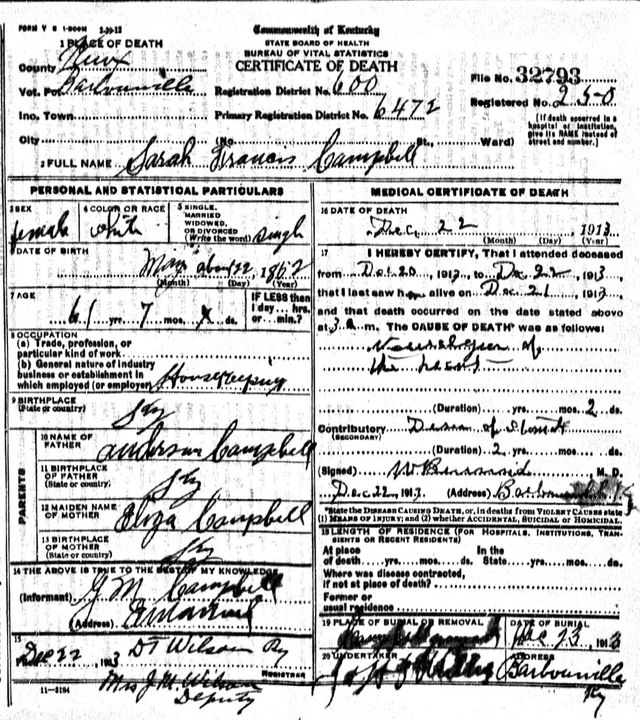 FORM V S 1-500M 2-19-12
Commonwealth of Kentucky
STATE BOARD OF HEALTH
BUREAU OF VITAL STATISTICS
CERTIFICATE OF DEATH
1 PLACE OF DEATH
County Knox
Vot. Barbourville
Registration District No. 600
File No. 32793
Inc. Town
Primary Registration District No. 6472
Registered No. 250
City (No. St., Ward)
[If death occurred in a hospital or institution, give its NAME instead of street and number.]
2 FULL NAME Sarah Francis Campbell
PERSONAL AND STATISTICAL PARTICULARS
3 SEX female
4 COLOR OR RACE white
5 SINGLE, MARRIED WIDOWED, OR DIVORCED (Write the word) Single
6 DATE OF BIRTH
May about 22, 1862
(Month) (Day) (Year)
7 AGE
61 yrs. 7 mos. ds.
IF LESS than 1 day hrs. or min.?
8 OCCUPATION
(a) Trade, profession, or particular kind of work
(b) General nature of industry business or establishment in which employed (or employer) Housekeeping
9 BIRTHPLACE (State or country) Ky
PARENTS
10 NAME OF FATHER Anderson Campbell
11 BIRTHPLACE OF FATHER (State or country) Ky
12 MAIDEN NAME OF MOTHER Eliza Campbell
13 BIRTHPLACE OF MOTHER (State or country) Ky
14 THE ABOVE IS TRUE TO THE BEST OF MY KNOWLEDGE
(Informant) G M Campbell
(Address)
15
Dec 22, 1913 DT Wilson Ky
REGISTRAR
Mrs J.M. Wilson
Deputy
11-3184
MEDICAL CERTIFICATE OF DEATH
16 DATE OF DEATH
Dec. 22, 1913
(Month) (Day) (Year)
17 I HEREBY CERTIFY, That I attended deceased
from Dec 20, 1913, to Dec 22, 1913
that I last saw h alive on Dec. 21, 1913,
and that death occurred on the date stated above
at 3 a m. The CAUSE OF DEATH* was as follows:
Neuralgia of
the heart
(Duration) yrs. mos. 2 ds.
Contributory (SECONDARY) of
(Duration) 2 yrs. mos. ds.
(Signed) M. D.
Dec 22, 1913 (Address) Barbourville Ky
*State the DISEASE CAUSING DEATH, or, in deaths from VIOLENT CAUSES state
(1) MEANS OF INJURY; and (2) whether ACCIDENTAL, SUICIDAL or HOMICIDAL.
18 LENGTH OF RESIDENCE (FOR HOSPITALS, INSTITUTIONS, TRANSIENTS OR RECENT RESIDENTS)
At place of death yrs. mos. ds. In the State yrs. mos. ds.
Where was disease contracted, if not at place of death?
Former or usual residence
19 PLACE OF BURIAL OR REMOVAL
DATE OF BURIAL
Dec 23, 1913
20 UNDERTAKER
ADDRESS
Barbourville
Ky